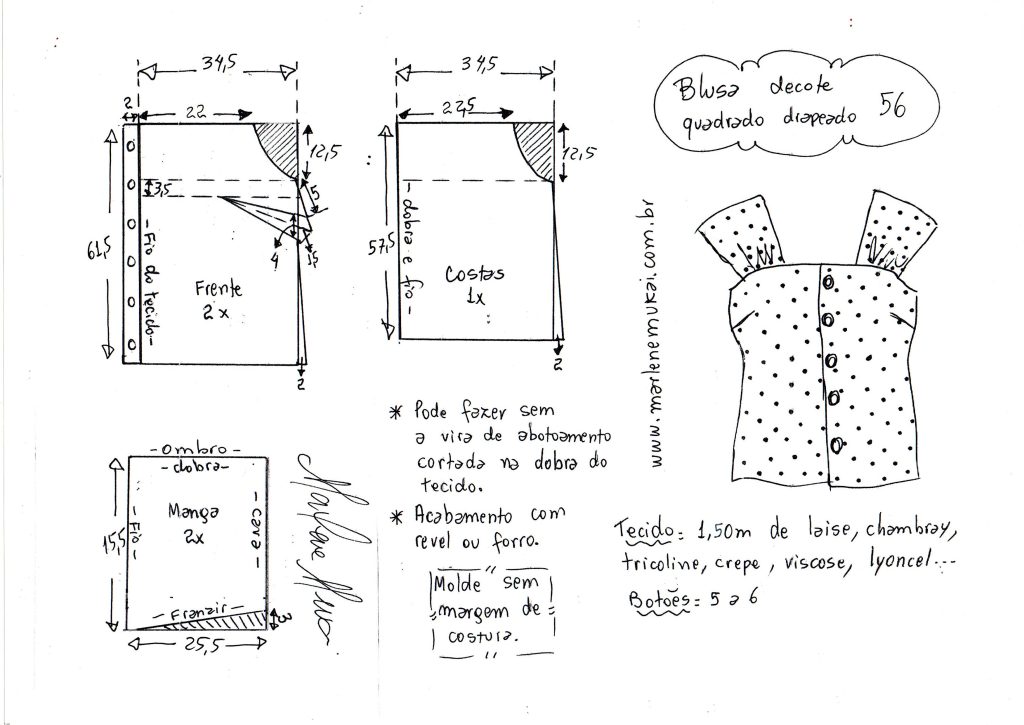 Blusa decote
quadrado drapeado 56
34,5
2
22
12,5
3,5
5
61,5
4
1,5
- Fio do tecido -
Frente
2x
2
34,5
22,5
12,5
57,5
- dobra e fio -
Costas
1x
2
www.marlenemukai.com.br
* Pode fazer sem
a vira de abotoamento
cortada na dobra do
tecido.
* Acabamento com
revel ou forro.
Molde sem
margem de
costura.
- ombro -
- dobra -
Manga
2x
15,5
- Fio -
- cava -
- Franzir -
3
25,5
Tecido: 1,50m de laise, chambray,
tricoline, crepe, viscose, lyoncel...
Botões: 5 a 6